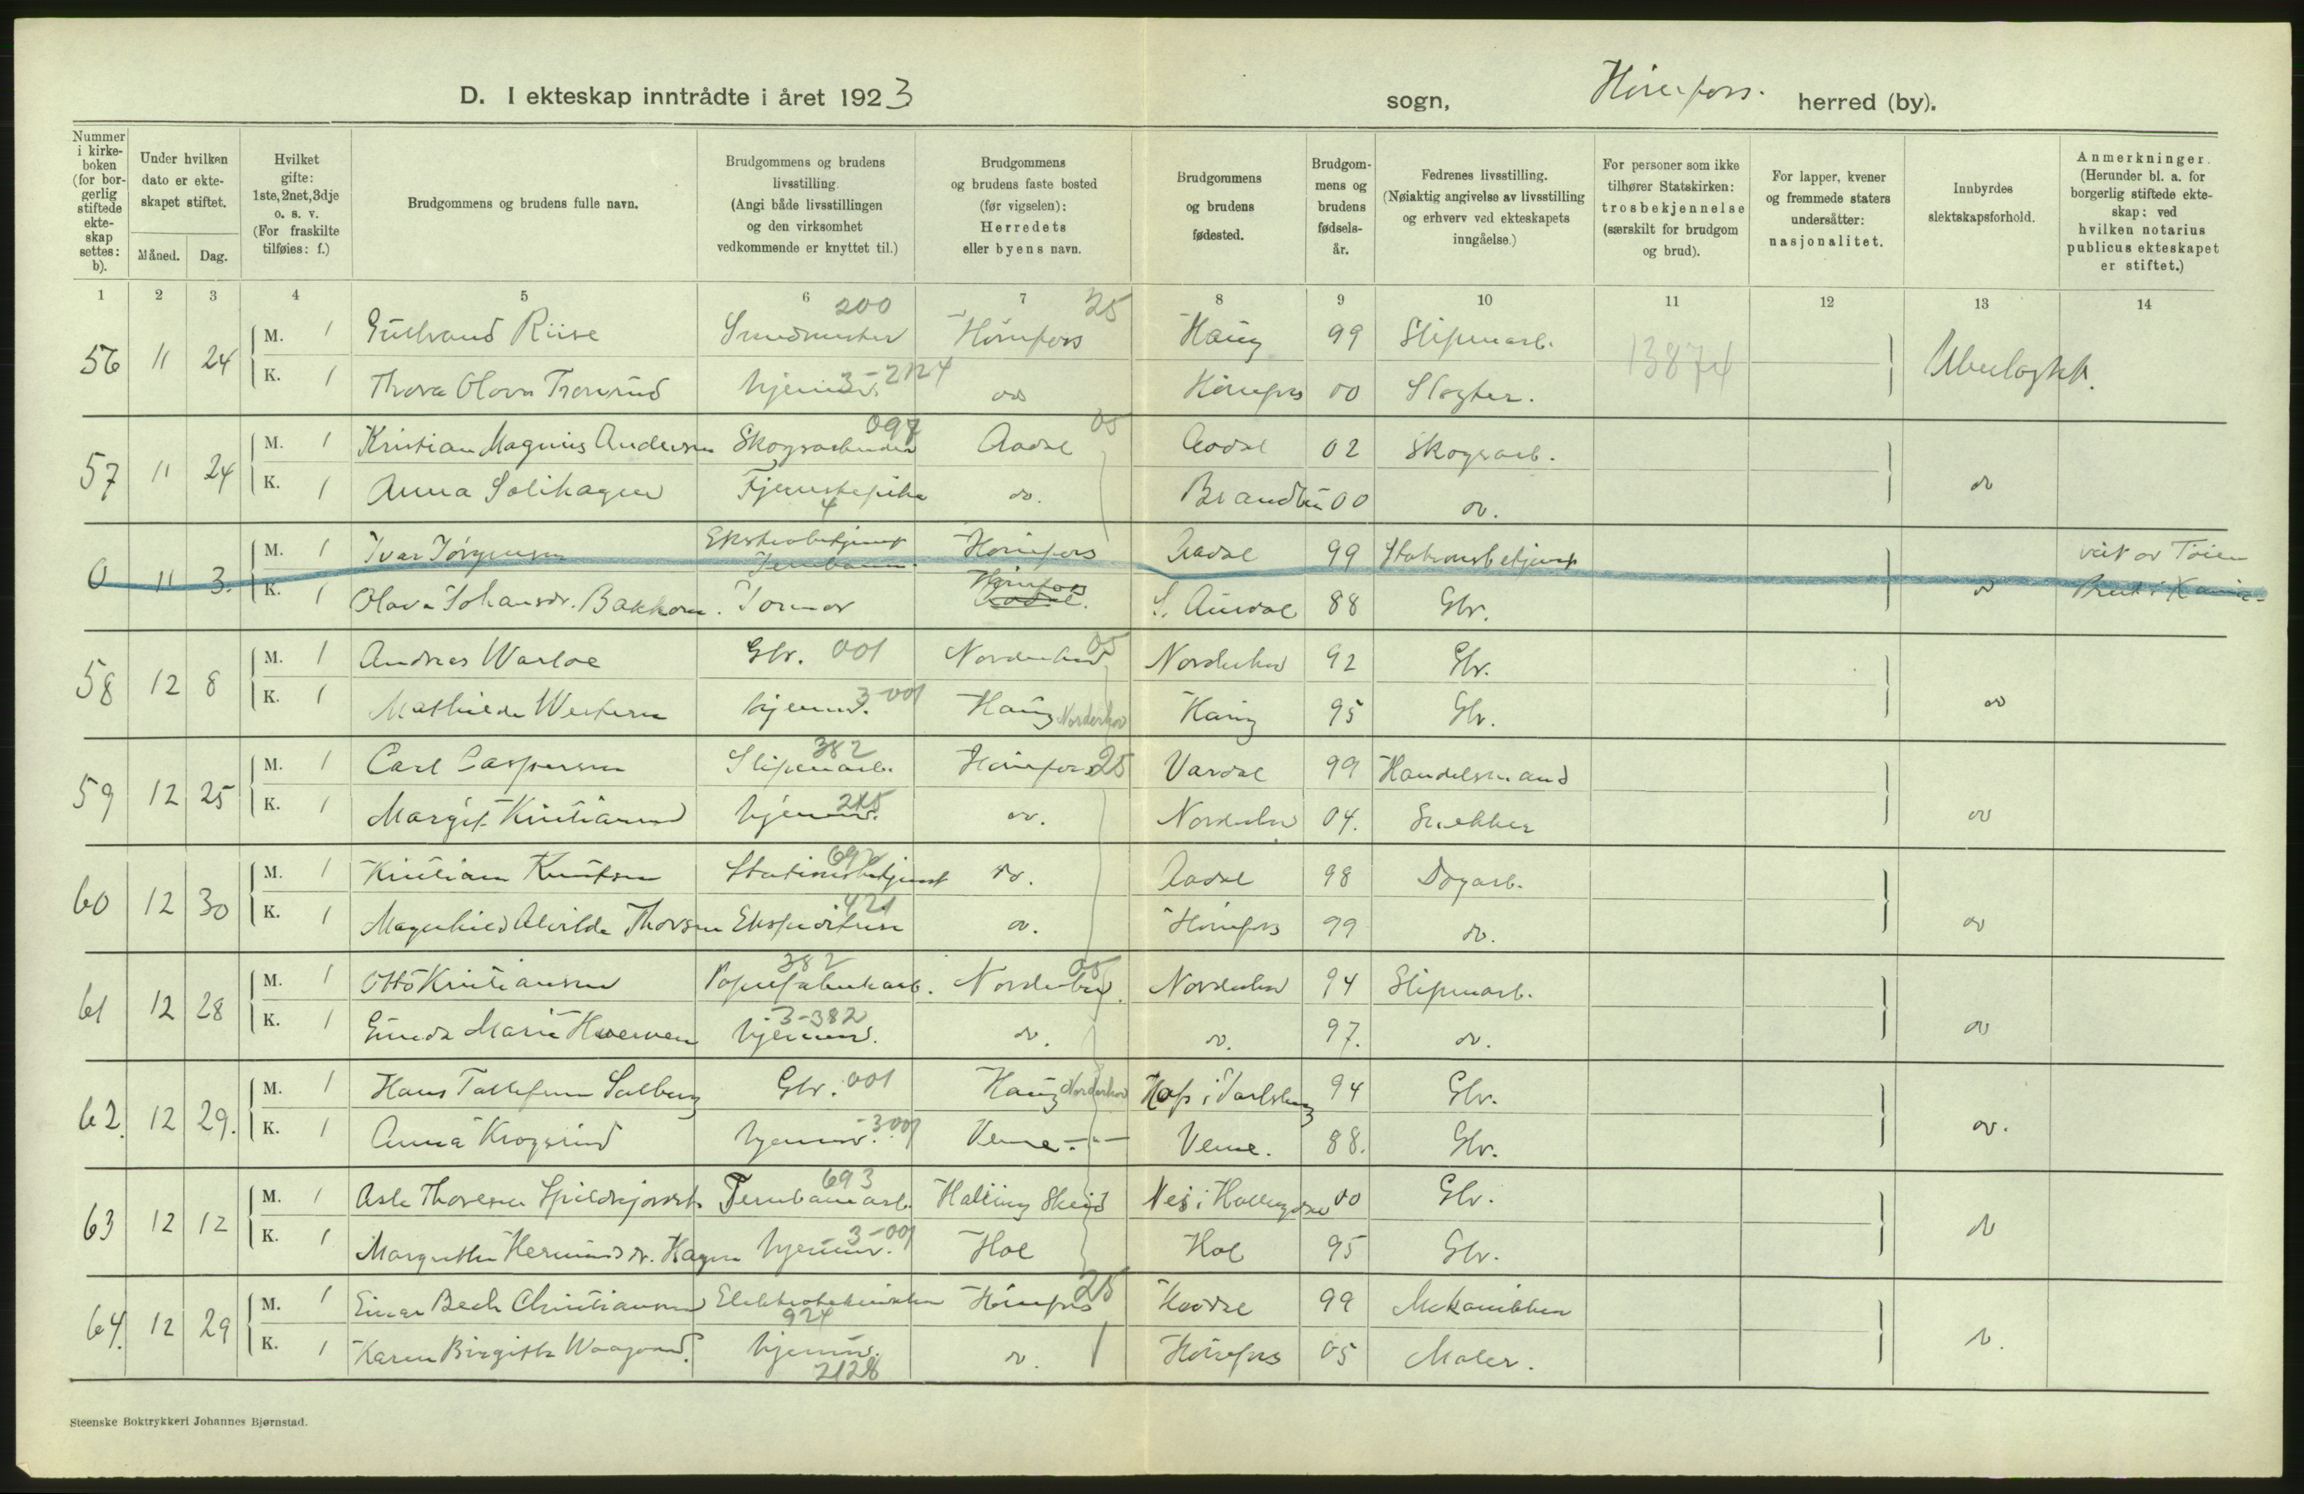 D. I ekteskap inntrådte i året 1923 sogn, Hønefoss. herred (by).
Nummer i kirke-boken (for bor-gerlig stiftede ekte-skap settes: b).
Under hvilken dato er ekte-skapet stiftet.
Måned. Dag.
Hvilket gifte: 1ste, 2net, 3dje o. s. v. (For fraskilte tilføies: f.)
Brudgommens og brudens fulle navn.
Brudgommens og brudens livsstilling. (Angi både livsstillingen og den virksomhet vedkommende er knyttet til.)
Brudgommens og brudens faste bosted (før vigselen): Herredets eller byens navn.
Brudgommens og brudens fødested.
Brudgom-mens og brudens fødsels-år.
Fedrenes livsstilling. (Nøiaktig angivelse av livsstilling og erhverv ved ekteskapets inngåelse.)
For personer som ikke tilhører Statskirken: trosbekjennelse (særskilt for brudgom og brud).
For lapper, kvener og fremmede staters undersåtter: nasjonalitet.
Innbyrdes slektskapsforhold.
Anmerkninger. (Herunder bl. a. for borgerlig stiftede ekte-skap: ved hvilken notarius publicus ekteskapet er stiftet.)
1 2 3 4 5 6 7 8 9 10 11 12 13 14
200 25
56 11 24 M. 1 Gulbrand Riise Hønefoss Haug 99 Sliperiarb. 13874 Ubeslægtet.
K. 1 Thora Olava hjemmev. 3-2124 do Hønefoss 00 Slagter.
097 05
57 11 24 M. 1 Kristian Magnus Andersen Skogsarbeider Aadal Aadal 02 Skogsarb.
K. 1 Anna Solihagen Tjenestepike do. Brandbu 00 do. do
4
0 11 3. M. 1 Ivar Jørgensen Ekstrabetjent Jernbanen. Hønefoss Aadal 99 Stationsbetjent
K. 1 Olava Johansdr. Bakkom. Hønefoss Aadal. S. Aurdal 88 Gbr. do
58 12 8 M. 1 Andreas Warloe Gbr. 001 Norderhov 05 Norderhov 92 Gbr.
K. 1 Mathilde Western hjemmev. 3-001 Haug Norderhov Haug 95 Gbr. do
59 12 25 M. 1 Carl Caspersen Sliperiarb. 382 Hønefoss 25 Vardal 99 Handelsmand
K. 1 Margit Kristiansen hjemmev. do. Norderhov 04. Snekker do
60 12 30 M. 1 Kristian Knutsen Stationsbetjent do. Aadal 98 Dagarb.
K. 1 Magnhild Alvilde Thorsen Ekspeditrise 421 do. Hønefoss 99 do. do
61 12 28 M. 1 Otto Kristiansen Papirfabrikarb. 382 Norderhov. 05 Norderhov 94 Sliperiarb.
K. 1 Gunda Marie Hverven hjemmev. 3-382 do. do. 97. do. do
62. 12 29. M. 1 Hans Tollefsen Solberg Gbr. 001 Haug Norderhov Hof i Jarlsberg 94 Gbr.
K. 1 Anna Krogsrud hjemmev. -3001 Veme. -"- Veme. 88. Gbr. do.
63 12 12 M. 1 Asle Thoresen Jernbanearb. 693 Halling Skeid Nes i Hallingdal 00 Gbr.
K. 1 Margrethe Hermundsdr. Hagen hjemmev. 3-001 Hol Hol 95 Gbr. do
64. 12 29 M. 1 Einar Bech Christiansen Elektrotekniker 924 Hønefoss 25 99 Mekaniker
K. 1 Karen Birgitte Waagaard. hjemmev. 2128 do. Hønefoss 05 Maler. do.
Steenske Boktrykkeri Johannes Bjørnstad.